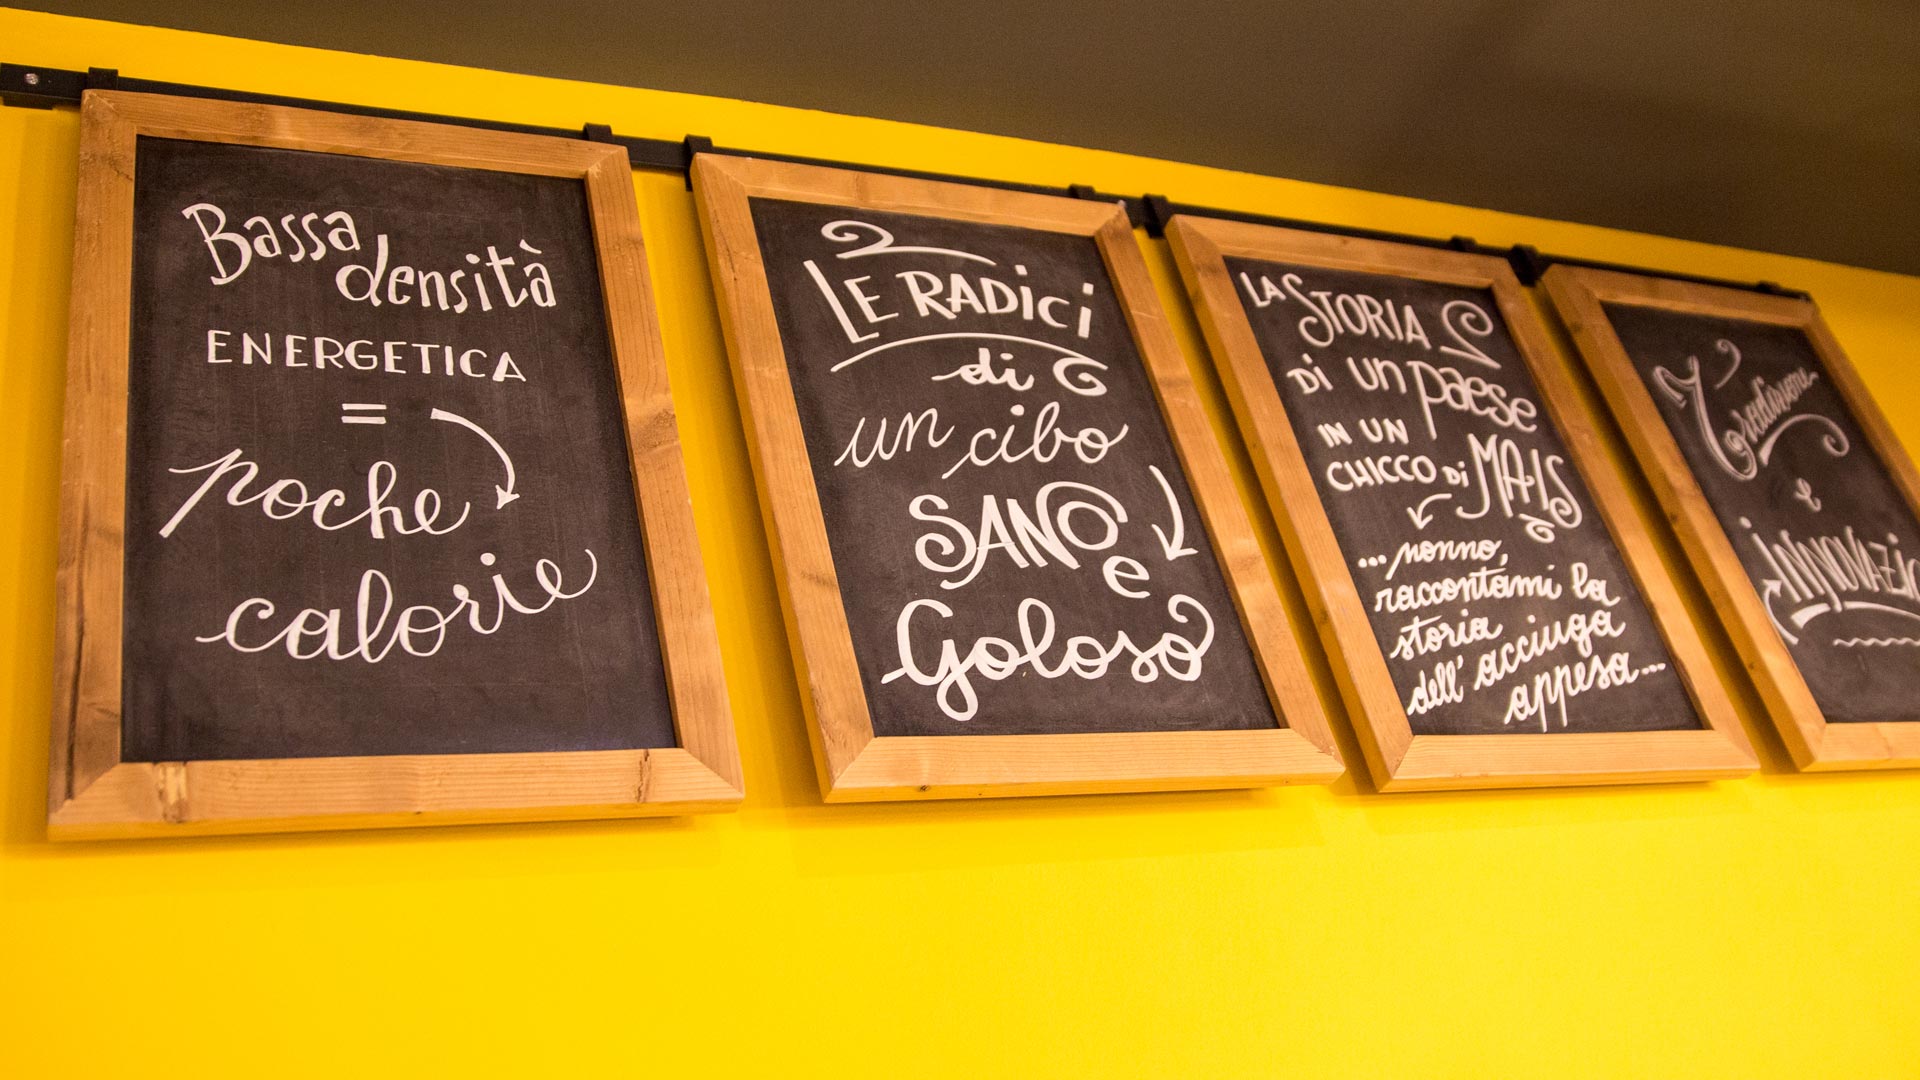 Bassa
densità
ENERGETICA
=
poche
calorie
LE RADICI
di
un cibo
SANO e
Goloso
LA STORIA
DI UN PAESE
IN UN
CHICCO DI MAIS
...nonno,
raccontami la
storia
dell'acciuga
appesa...
Tradizione
e